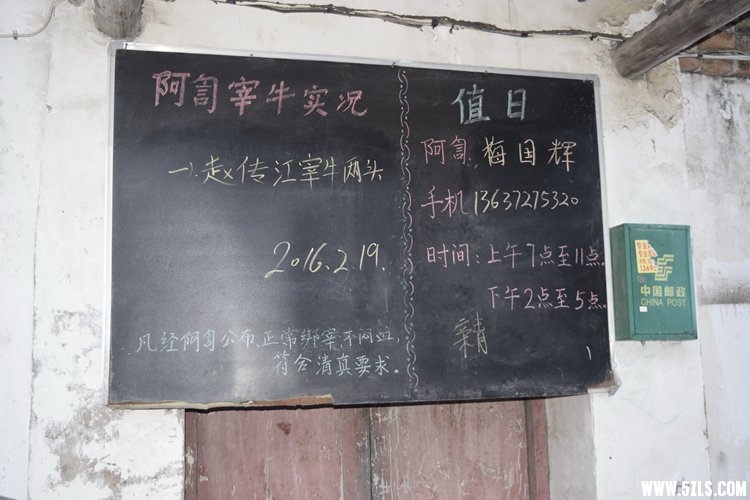 阿訇宰牛实况
一、赵传江宰牛两头
2016.2.19.
凡经阿訇公布、正常绑宰、不网血,
符合清真要求。
值日
阿訇:梅国辉
手机 13637275320
时间:上午7点至11点.
下午2点至5点.
中国邮政
CHINA POST
WWW.5ZLS.COM